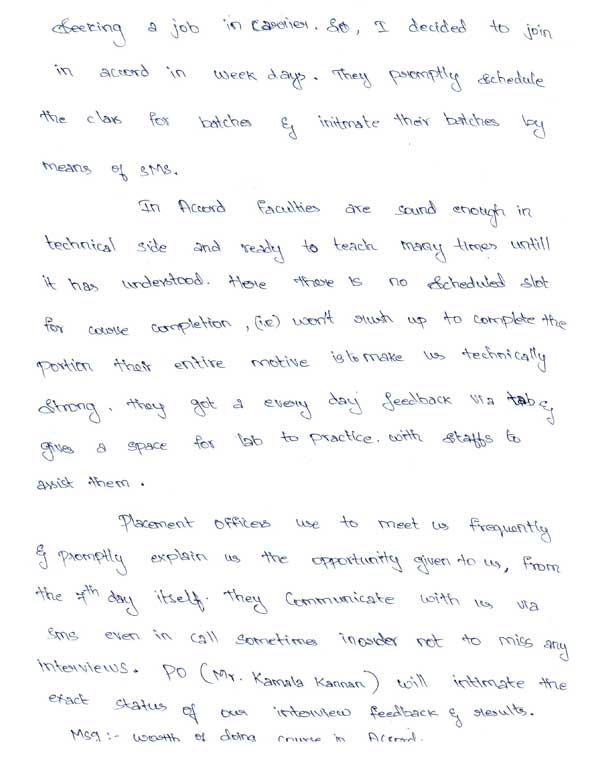 Seeking a job in Carrier. So, I decided to join
in accord in week days. They promptly schedule
the class for batches & initmate their batches by
means of SMS.
In Accord Faculties are sound enough in
technical side and ready to teach many times untill
it has understood. Here there is no scheduled slot
for course completion, (i.e) won't rush up to complete the
portion their entire motive is to make us technically
strong. They got a every day feedback via tab &
gives a space for lab to practice. with staffs to
assist them.
Placement officers use to meet us frequently
& promptly explain us the opportunity given to us, From
the 7th day itself. They Communicate with us via
sms even in call sometimes inorder not to miss any
interviews. PO (Mr. Kamala Kannan) will intimate the
exact status of our interview feedback & results.
Msg :- worth of doing course in Accord.